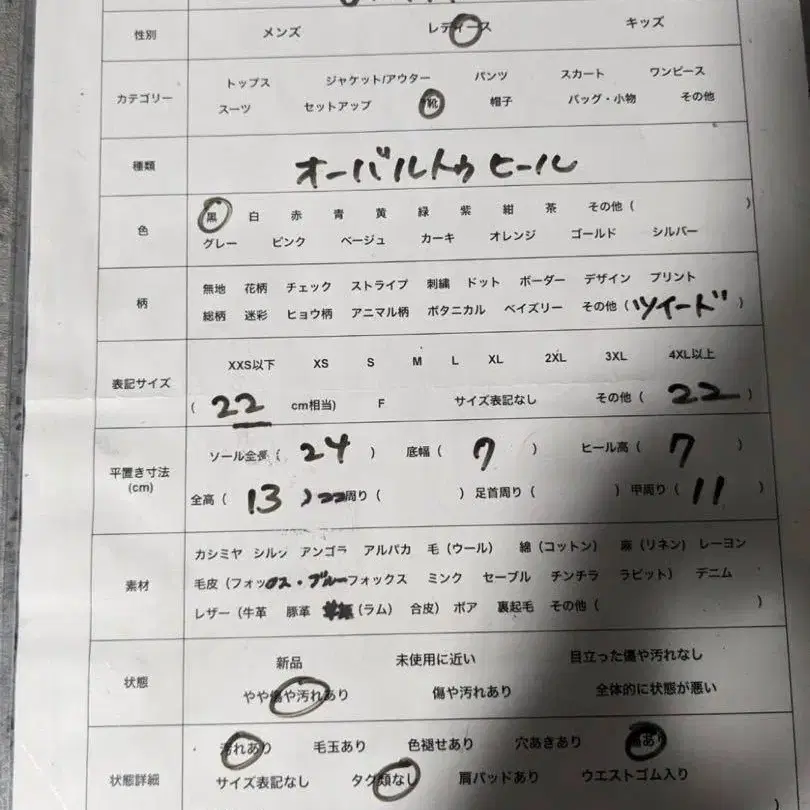 性別 メンズ レディース キッズ
カテゴリー
トップス ジャケット/アウター パンツ スカート ワンピース
スーツ セットアップ 靴 帽子 バッグ・小物 その他
種類 オーバルトゥヒール
色
黒 白 赤 青 黄 緑 紫 紺 茶 その他 ( )
グレー ピンク ベージュ カーキ オレンジ ゴールド シルバー
柄
無地 花柄 チェック ストライプ 刺繍 ドット ボーダー デザイン プリント
総柄 迷彩 ヒョウ柄 アニマル柄 ボタニカル ペイズリー その他 (ツイード)
表記サイズ
XXS以下 XS S M L XL 2XL 3XL 4XL以上
( 22 cm相当) F サイズ表記なし その他 ( 22 )
平置き寸法
(cm)
ソール全長 ( 24 ) 底幅 ( 7 ) ヒール高 ( 7 )
全高 ( 13 ) 周り ( ) 足首周り ( ) 甲周り ( 11 )
素材
カシミヤ シルク アンゴラ アルパカ 毛 (ウール) 綿 (コットン) 麻 (リネン) レーヨン
毛皮 (フォックス・ブルーフォックス ミンク セーブル チンチラ ラビット) デニム
レザー (牛革 豚革 (ラム) 合皮) ボア 裏起毛 その他 ( )
状態
新品 未使用に近い 目立った傷や汚れなし
やや傷や汚れあり 傷や汚れあり 全体的に状態が悪い
状態詳細
汚れあり 毛玉あり 色褪せあり 穴あきあり 傷あり
サイズ表記なし タグ類なし 肩パッドあり ウエストゴム入り